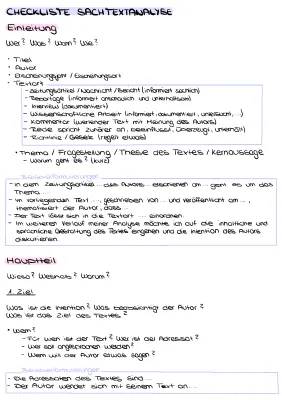 CHECKLISTE SACHTEXTANALYSE
Einleitung
Wer? Was? Wann? Wie?
• Titel
• Autor
• Erscheinungsjahr / Erscheinungsort
• Textart
- Zeitungsartikel / Nachricht / Bericht (informiert sachlich)
- Reportage (informiert anschaulich und unterhaltsam)
- Interview (dokumentiert)
- Wissenschaftliche Arbeit (informiert, dokumentiert, untersucht, ...)
- Kommentar (wertender Text mit Meinung des Autors)
- Rede spricht Zuhörer an, beeinflusst, überzeugt, unterhält)
- Richtlinie / Gesetz (regelt etwas)
• Thema / Fragestellung / These des Textes / Kernaussage
- Worum geht es? (kurz)
- In dem Zeitungsartikel ... des Autors ... erschienen am ... geht es um das
Thema ...
- Im vorliegenden Text ..., geschrieben von ... und veröffentlicht am ...,
thematisiert der Autor, dass ...
- Der Text lässt sich in die Textart ... einordnen.
- Im weiteren Verlauf meiner Analyse möchte ich auf die inhaltliche und
sprachliche Gestaltung des Textes eingehen und die Intention des Autors
diskutieren.
Hauptteil
Wieso? Weshalb? Warum?
1. Ziel
Was ist die Intention? Was beabsichtigt der Autor?
Was ist das Ziel des Textes?
• Wem?
- Für wen ist der Text? Wer ist der Adressat?
- Wer soll angesprochen werden?
- Wem will der Autor etwas sagen?
- Die Adressaten des Textes sind ...
- Der Autor wendet sich mit seinem Text an ...